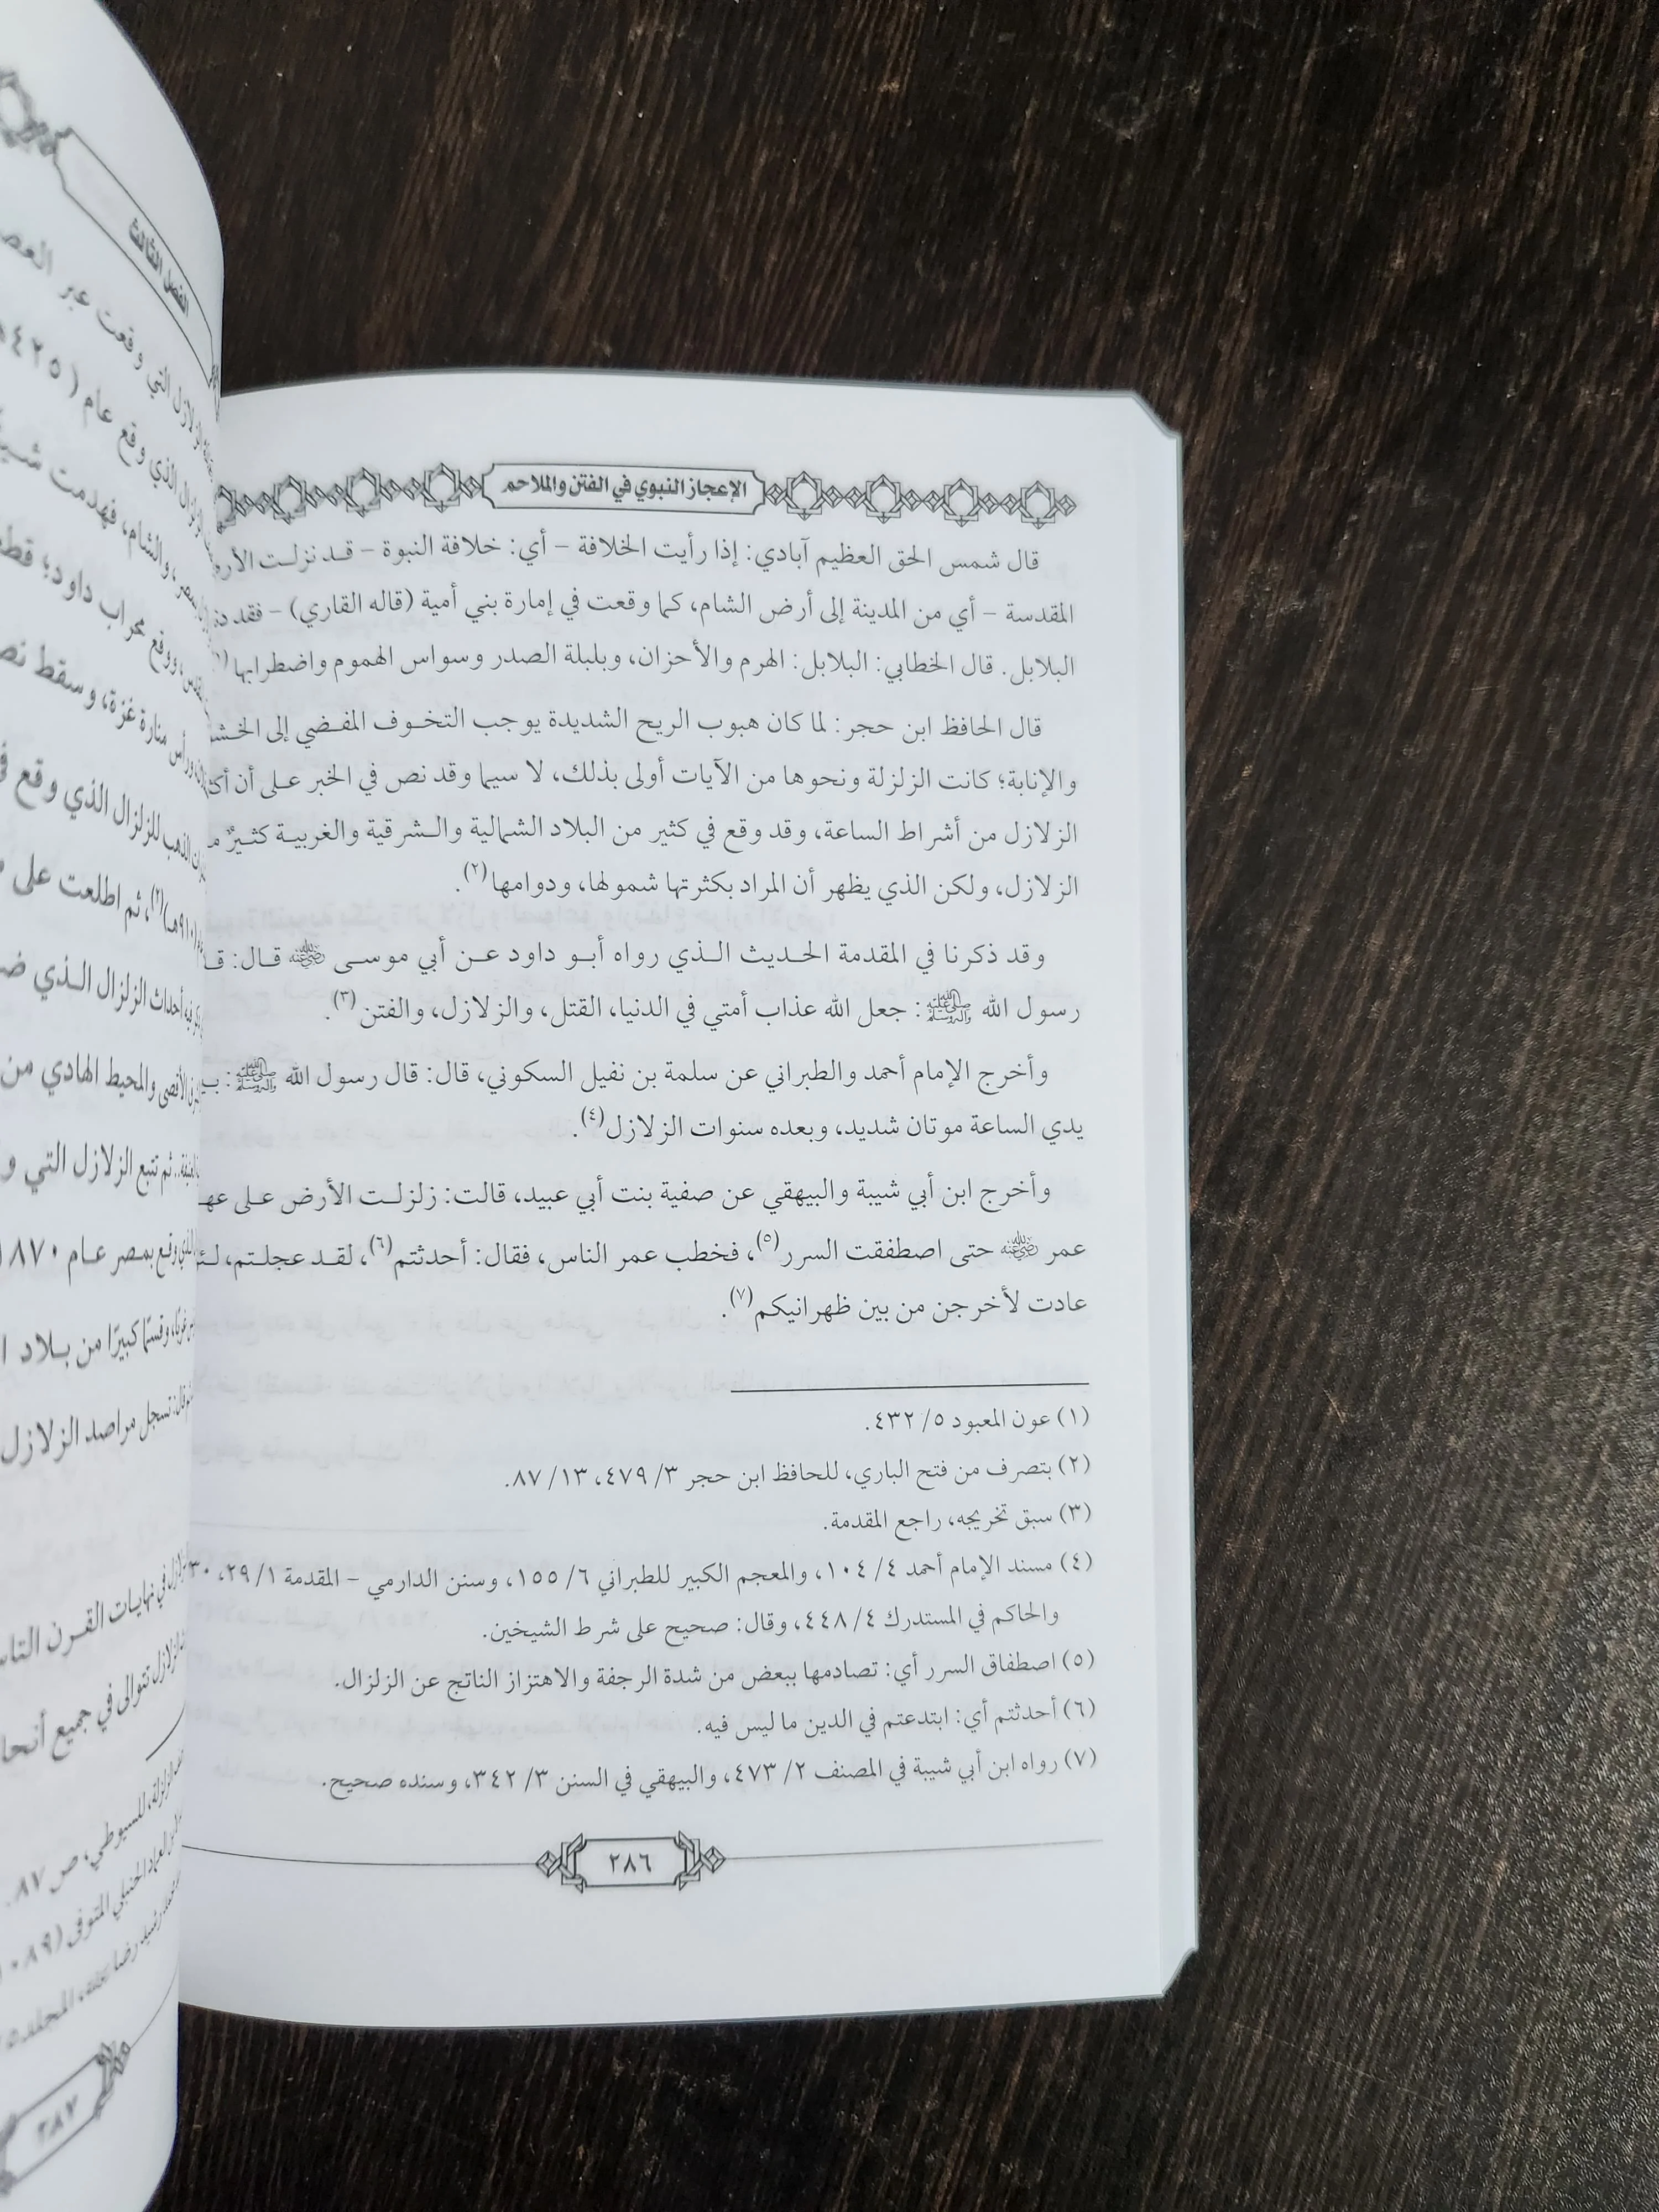 الإعجاز النبوي في الفتن والملاحم
قال شمس الحق العظيم آبادي: إذا رأيت الخلافة – أي: خلافة النبوة – قد نزلت
المقدسة – أي من المدينة إلى أرض الشام، كما وقعت في إمارة بني أمية (قاله القاري) – فقد
البلابل. قال الخطابي: البلابل: الهرم والأحزان، وبلبلة الصدر وسواس الهموم واضطرابها
قال الحافظ ابن حجر: لما كان هبوب الريح الشديدة يوجب التخوف المفضي إلى
والإنابة؛ كانت الزلزلة ونحوها من الآيات أولى بذلك، لا سيما وقد نص في الخبر على أن
الزلازل من أشراط الساعة، وقد وقع في كثير من البلاد الشمالية والشرقية والغربية كثيرٌ
الزلازل، ولكن الذي يظهر أن المراد بكثرتها شمولها، ودوامها(٢).
وقد ذكرنا في المقدمة الحديث الذي رواه أبو داود عن أبي موسى ﵁ قال:
رسول الله ﷺ: جعل الله عذاب أمتي في الدنيا، القتل، والزلازل، والفتن(٣).
وأخرج الإمام أحمد والطبراني عن سلمة بن نفيل السكوني، قال: قال رسول الله ﷺ:
يدي الساعة موتان شديد، وبعده سنوات الزلازل(٤).
وأخرج ابن أبي شيبة والبيهقي عن صفية بنت أبي عبيد، قالت: زلزلت الأرض على
عمر ﵁ حتى اصطفقت السرر(٥)، فخطب عمر الناس، فقال: أحدثتم(٦)، لقد عجلتم،
عادت لأخرجن من بين ظهرانيكم(٧).
(١) عون المعبود ٥/ ٤٣٢.
(٢) بتصرف من فتح الباري، للحافظ ابن حجر ٣/ ٤٧٩، ١٣/ ٨٧.
(٣) سبق تخريجه، راجع المقدمة.
(٤) مسند الإمام أحمد ٤/ ١٠٤، والمعجم الكبير للطبراني ٦/ ١٥٥، وسنن الدارمي – المقدمة ١/ ٢٩، ٣٠
والحاكم في المستدرك ٤/ ٤٤٨، وقال: صحيح على شرط الشيخين.
(٥) اصطفاق السرر أي: تصادمها ببعض من شدة الرجفة والاهتزاز الناتج عن الزلزال.
(٦) أحدثتم أي: ابتدعتم في الدين ما ليس فيه.
(٧) رواه ابن أبي شيبة في المصنف ٢/ ٤٧٣، والبيهقي في السنن ٣/ ٣٤٢، وسنده صحيح.
٢٨٦
الفصل الثالث
الزلازل التي وقعت عبر
الزلزال الذي وقع عام (٤٢٥
والشام، فهدمت
ووقع محراب داود؛
ورأس منارة غزة، وسقط
للزلزال الذي وقع
ثم اطلعت على
أحداث الزلزال الذي
الأقصى والمحيط الهادي من
ثم تتبع الزلازل التي
وقع بمصر عام ١٨٧٠
وقسمًا كبيرًا من بلاد
تسجل مراصد الزلازل
في نهايات القرن
الزلازل تتوالى في جميع
للسيوطي، ص ٨٧.
العماد الحنبلي المتوفى (١٠٨٩
رشيد رضا
٢٨٧